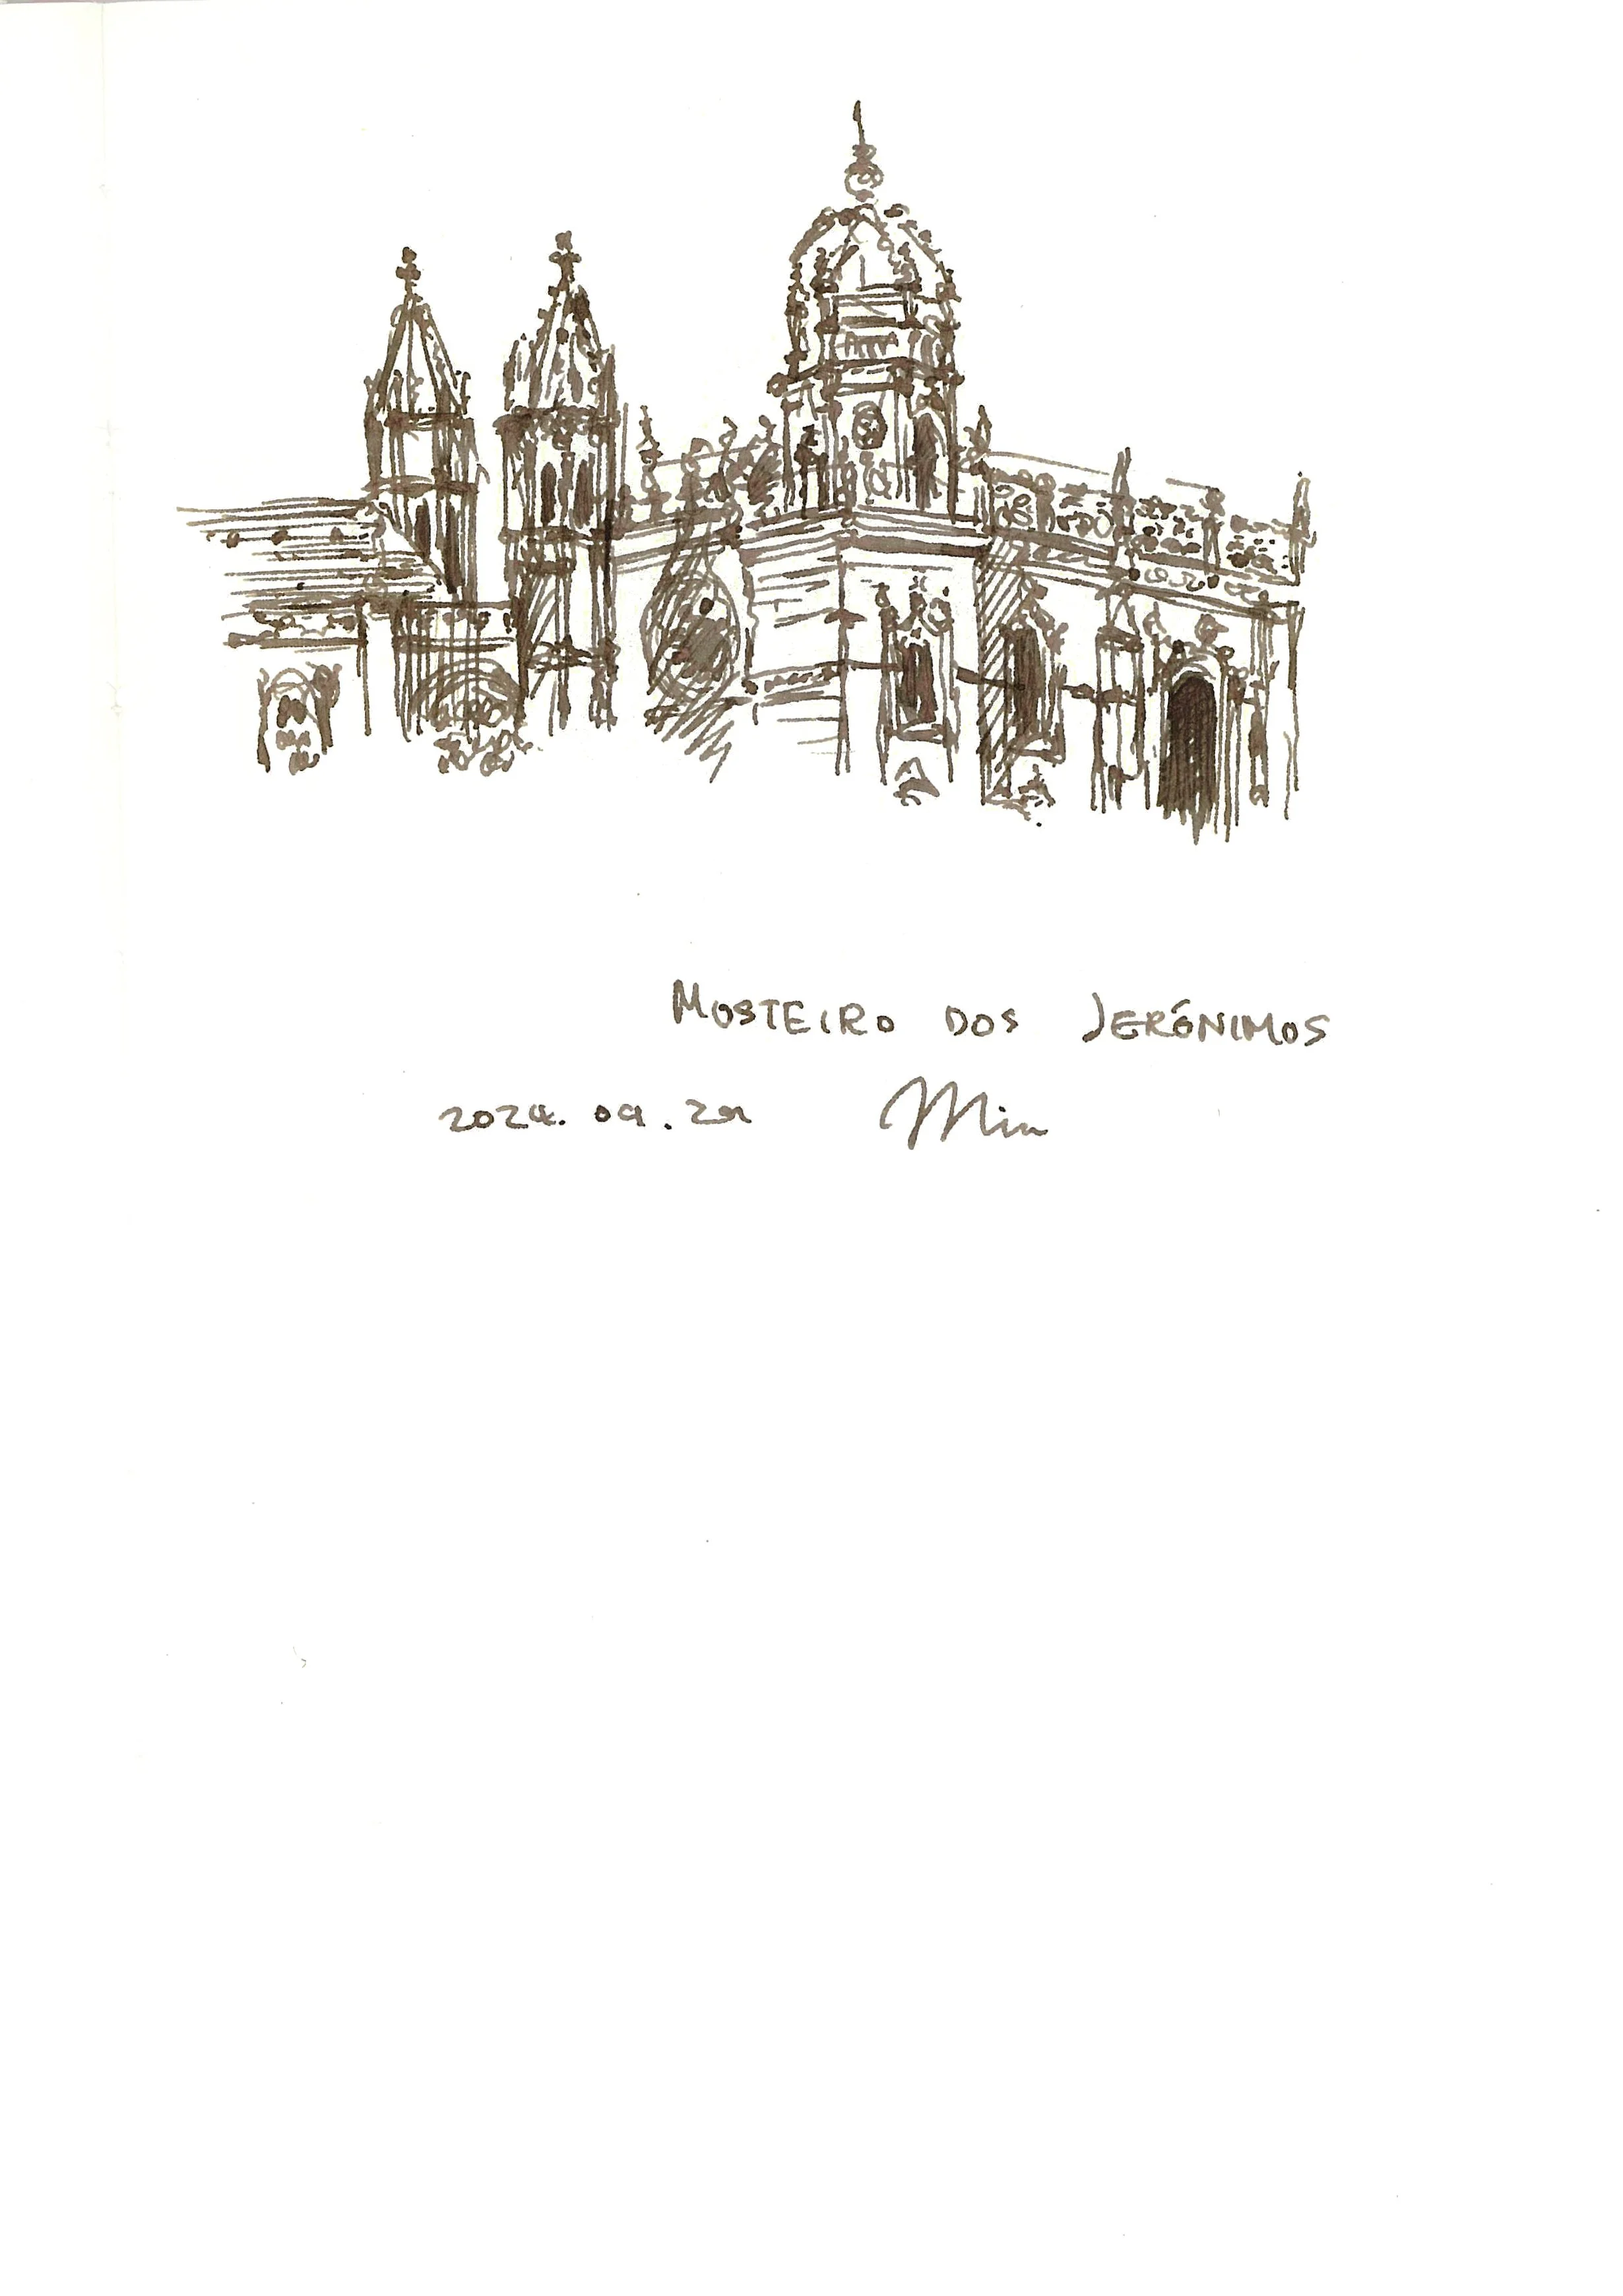 Mosteiro dos Jerónimos
2024. 09. Min